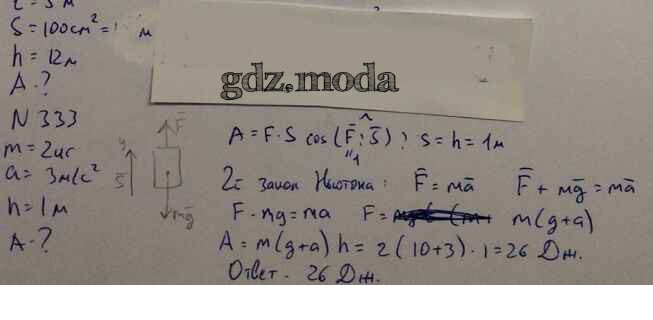 S = 100 см² =
м
h = 12 м
A - ?
gdz.moda
N 333
m = 2 кг
a = 3 м/с²
h = 1 м
A - ?
y
S̄
F̄
mḡ
A = F · S cos (F̄; S̄) ; S = h = 1 м
"1
2й закон Ньютона: F̄ = mā F̄ + mḡ = mā
F - mg = ma F = m(g+a)
A = m(g+a) h = 2 (10+3) · 1 = 26 Дж.
Ответ - 26 Дж.